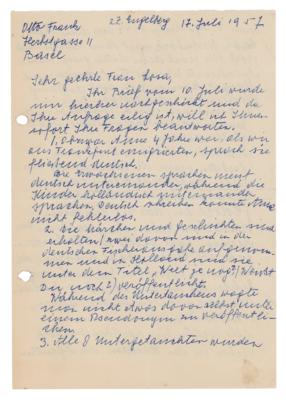 Otto Frank z.Z. Engelberg 17. Juli 1957
Herbstgasse 11
Basel
Sehr geehrte Frau Losa,
Ihr Brief vom 10. Juli wurde
mir hierher nachgeschickt und da
Ihre Anfrage eilig ist, will ich Ihnen
sofort Ihre Fragen beantworten.
1. Obzwar Anne 4 Jahre war, als wir
aus Frankfurt emigrierten, sprach sie
fliessend deutsch.
Die Erwachsenen sprachen meist
deutsch untereinander, während die
Kinder holländisch miteinander
sprachen. Deutsch schreiben konnte Anne
nicht fehlerlos.
2. Die Märchen und Geschichten sind
erhalten, zwei davon sind in der
deutschen Fischerausgabe aufgenom-
men und in Holland sind sie
unter dem Titel „Weet je nog?" (Weisst
Du noch?) veröffentlicht.
Während des Untertauchens wagte
man nicht etwas davon selbst unter
einem Pseudonym zu veröffentli-
chen.
3. Alle 8 Untergetauchten wurden